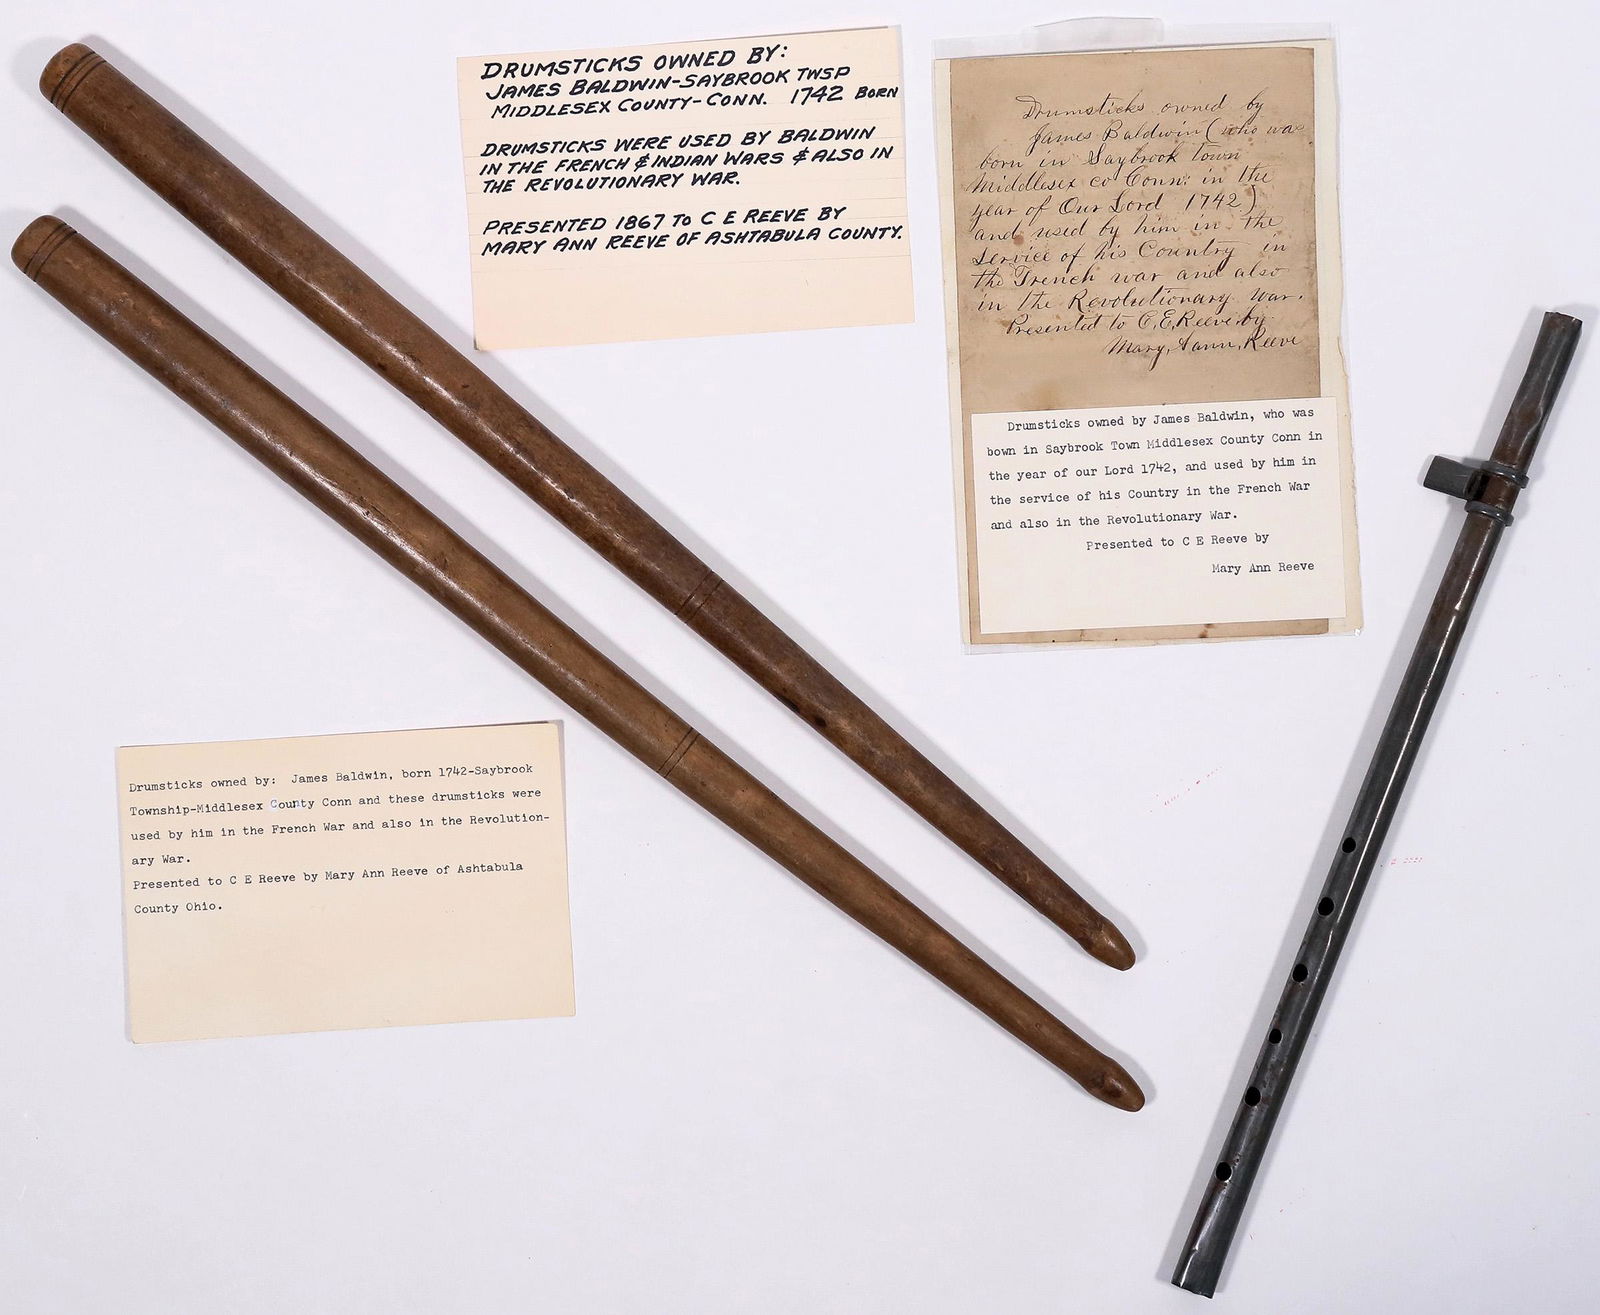 DRUMSTICKS OWNED BY:
JAMES BALDWIN-SAYBROOK TWSP
MIDDLESEX COUNTY-CONN. 1742 BORN
DRUMSTICKS WERE USED BY BALDWIN
IN THE FRENCH & INDIAN WARS & ALSO IN
THE REVOLUTIONARY WAR.
PRESENTED 1867 TO C E REEVE BY
MARY ANN REEVE OF ASHTABULA COUNTY.
Drumsticks owned by
James Baldwin (who was
born in Saybrook Town
Middlesex co Conn: in the
year of Our Lord 1742)
and used by him in the
service of his Country in
the French war and also
in the Revolutionary War.
Presented to C,E,Reeve by
Mary, Aann, Reeve
Drumsticks owned by James Baldwin, who was
bown in Saybrook Town Middlesex County Conn in
the year of our Lord 1742, and used by him in
the service of his Country in the French War
and also in the Revolutionary War.
Presented to C E Reeve by
Mary Ann Reeve
Drumsticks owned by: James Baldwin, born 1742-Saybrook
Township-Middlesex County Conn and these drumsticks were
used by him in the French War and also in the Revolution-
ary War.
Presented to C E Reeve by Mary Ann Reeve of Ashtabula
County Ohio.